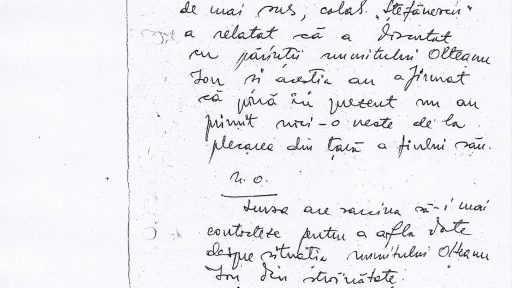 de mai sus, colab. „Ștefănescu”
a relatat că a discutat
cu părinții numitului Olteanu
Ion și aceștia au afirmat
că pînă în prezent nu au
primit nici-o veste de la
plecarea din țară a fiului său.
N.O.
Sursa are sarcina să-i mai
contacteze pentru a afla date
despre situația numitului Olteanu
Ion din străinătate.